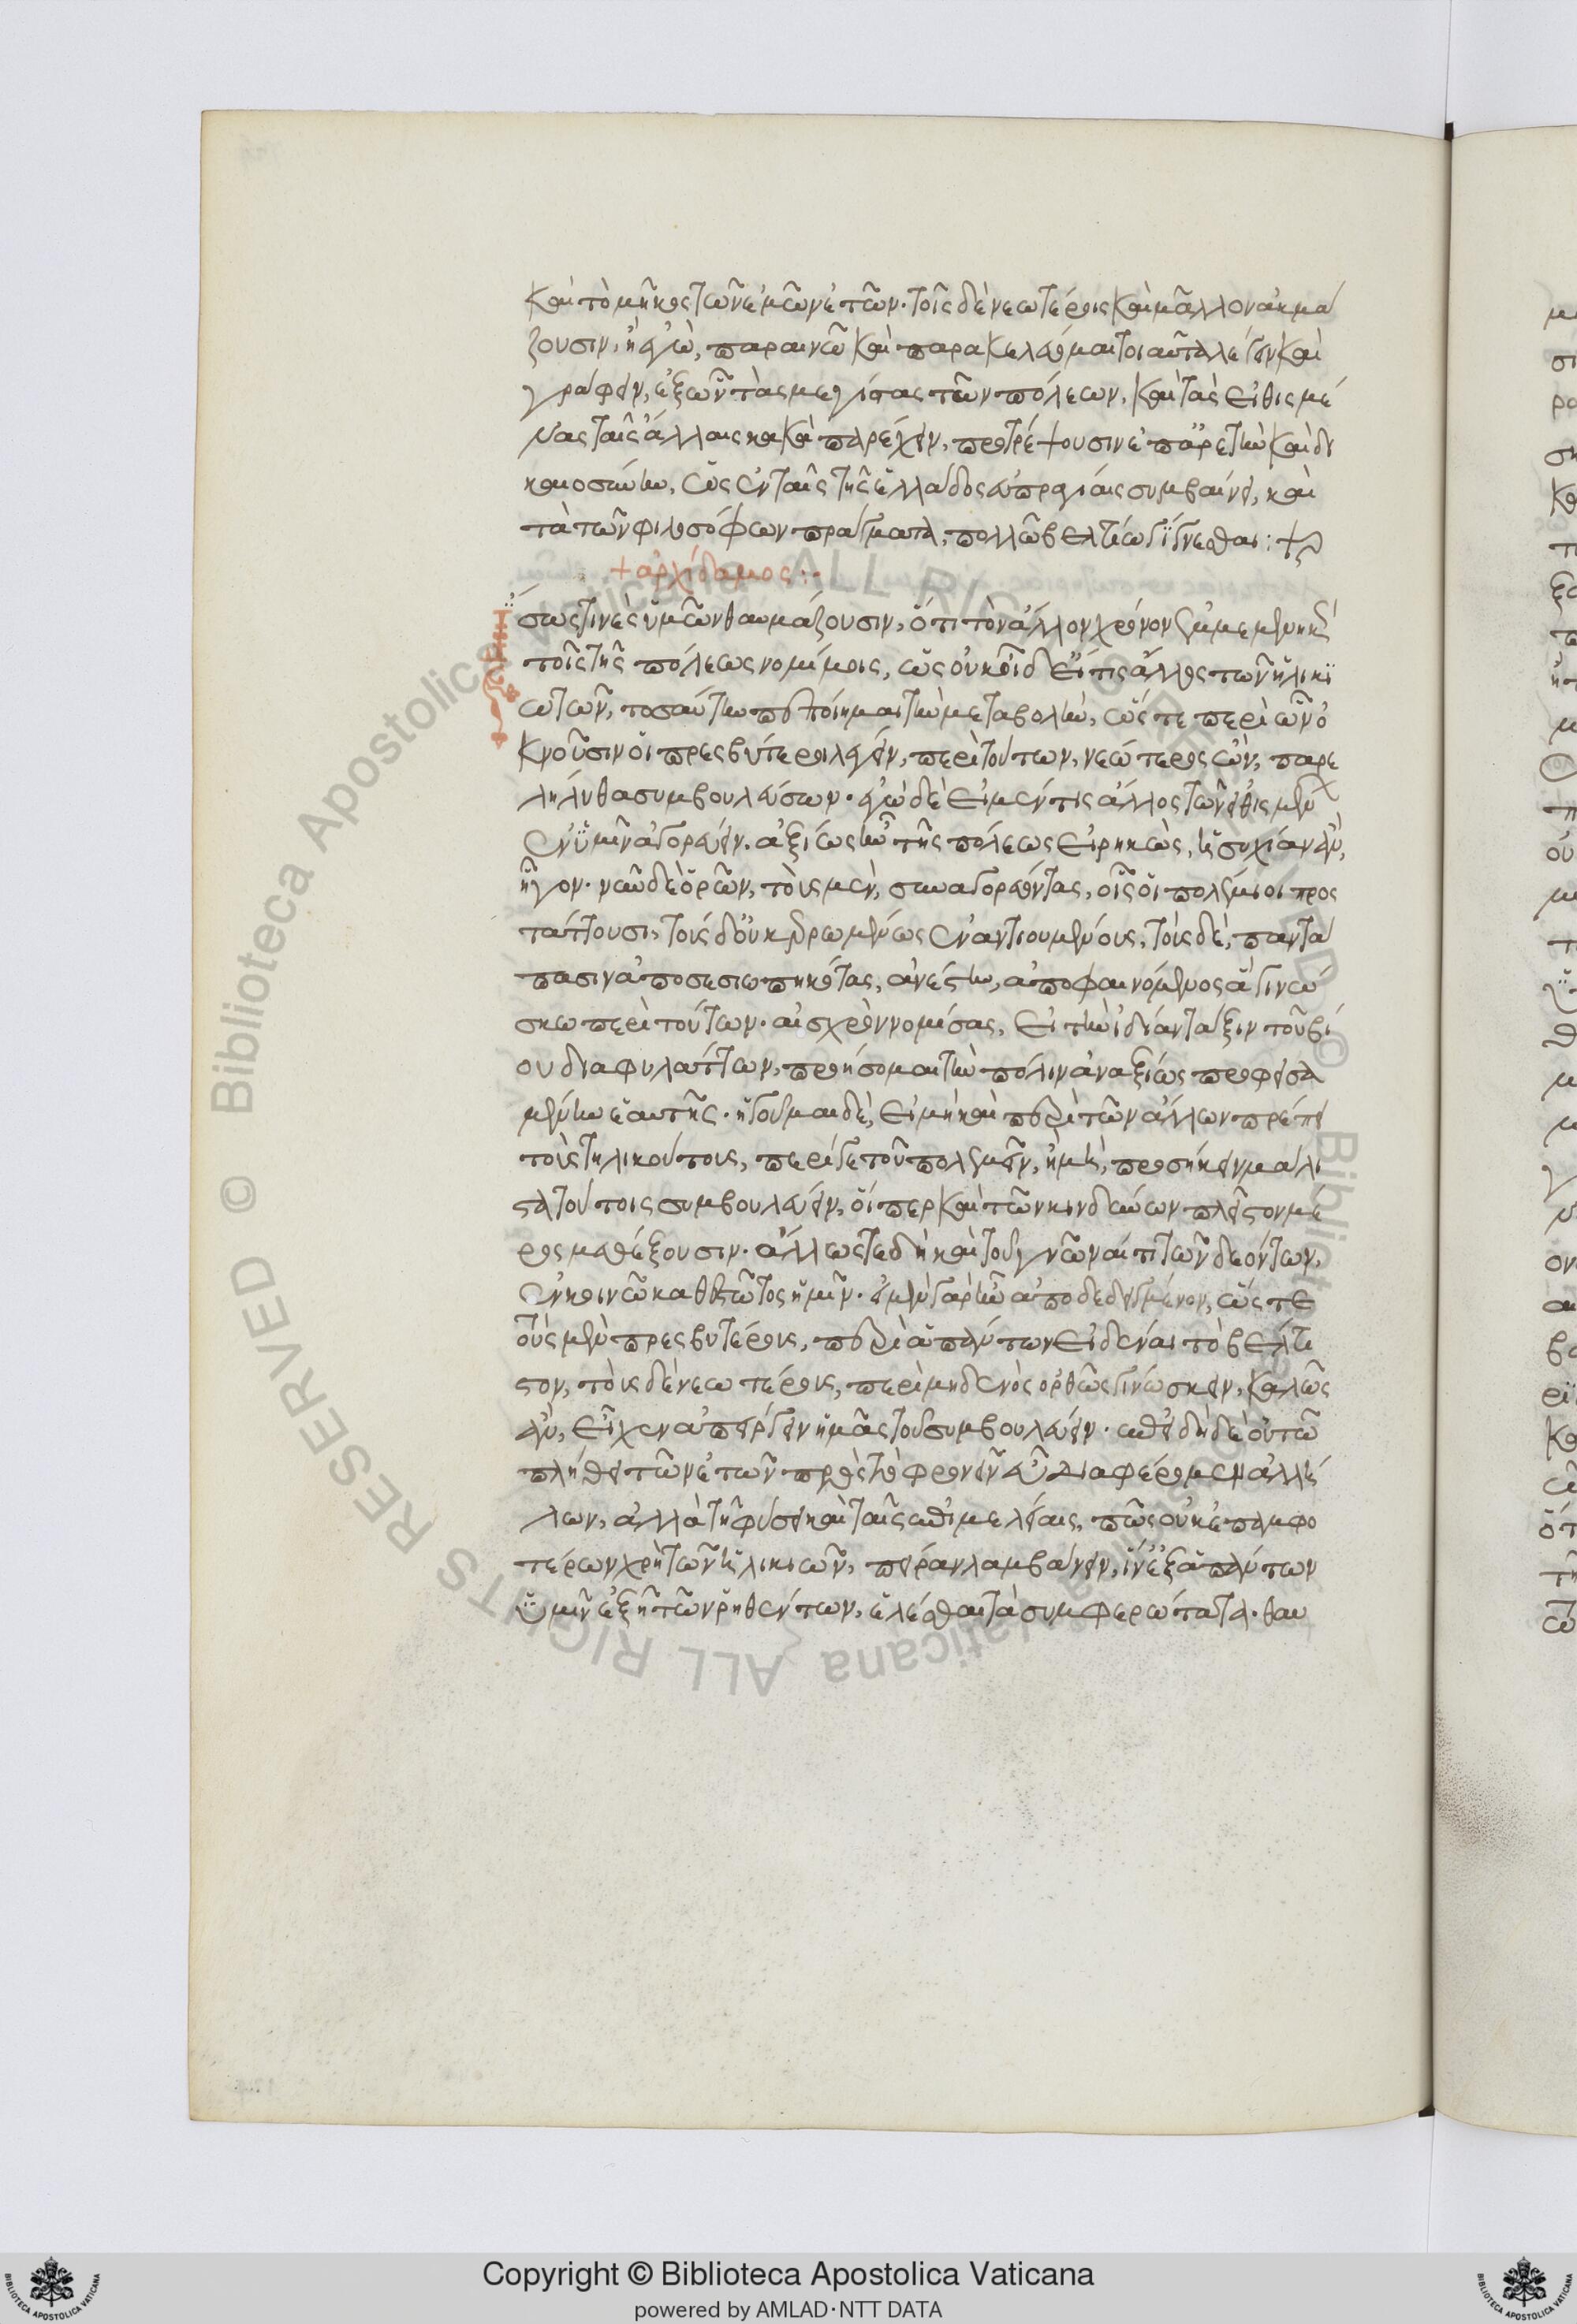 καὶ τὸ μῆκος τῶν ἐμῶν ἐτῶν· τοῖς δὲ νεωτέροις καὶ μᾶλλον ἀκμά
ζουσιν, ἢ ἐγὼ, παραινῶ καὶ παρακελεύομαι τοιαῦτα λέγειν καὶ
γράφειν, ἐξ ὧν τὰς μεγίστας τῶν πόλεων, καὶ τὰς εἰθισμέ
νας ταῖς ἄλλαις κακὰ παρέχειν, προτρέψουσιν ἐπ' ἀρετὴν καὶ δι
καιοσύνην, ὡς ἐν ταῖς τῆς ἑλλάδος εὐπραγίαις συμβαίνει, καὶ
τὰ τῶν φιλοσόφων πράγματα, πολλῶ βελτίω γίγνεσθαι :+
+ ἀρχίδαμος :-
ἴσως τινὲς ὑμῶν θαυμάζουσιν, ὅτι τὸν ἄλλον χρόνον ἐμμεμενηκὼς
τοῖς τῆς πόλεως νομίμοις, ὡς οὐκ οἶδ' εἴ τις ἄλλος τῶν ἡλικι
ωτῶν, τοσαύτην πεποίημαι τὴν μεταβολὴν, ὥς τε περὶ ὧν ὀ
κνοῦσιν οἱ πρεσβύτεροι λέγειν, περὶ τούτων, νεώτερος ὢν, παρε
λήλυθα συμβουλεύσων· ἐγὼ δὲ εἰ μέν τις ἄλλος τῶν εἰθισμένων
ἐν ὑμῖν ἀγορεύειν· ἀξίως ἦν τῆς πόλεως εἰρηκὼς, ἡσυχίαν ἂν,
ἦγον· νῦν δὲ ὁρῶν, τοὺς μὲν, συναγορεύοντας, οἷς οἱ πολέμιοι προς
τάττουσι, τοὺς δ' οὐκ ἐρρωμένως ἐναντιουμένους, τοὺς δὲ, παντά
πασιν ἀποσεσιωπηκότας, ἀνέστην, ἀποφαινόμενος ἃ γινώ
σκω περὶ τούτων· αἰσχρὸν νομίσας, εἰ τὴν ἰδίαν τάξιν τοῦ βί
ου διαφυλάττων, προήσομαι τὴν πόλιν ἀναξίως
μένην ἑαυτῆς· ἡγοῦμαι δὲ, εἰ μὴ καὶ περὶ τῶν ἄλλων πρέπει
τοῖς τηλικούτοις, περί γε τοῦ πολεμεῖν, ἢ μὴ, προσήκειν μάλι
στα τούτοις συμβουλεύειν, οἵ περ καὶ τῶν κινδύνων πλεῖστον μέ
ρος μεθέξουσιν· ἄλλως τε δὴ καὶ τοῦ γνῶναί τι τῶν δεόντων,
ἐν κοινῶ καθεστῶτος ἡμῖν· εἰ μὲν γὰρ ἦν ἀποδεδειγμένον, ὥς τε
τοὺς μὲν πρεσβυτέρους, περὶ ἁπάντων εἰδέναι τὸ βέλτι
στον, τοὺς δὲ νεωτέρους, περὶ μηδενὸς ὀρθῶς γινώσκειν, καλῶς
ἂν, εἶχεν ἀπείργειν ἡμᾶς τοῦ συμβουλεύειν· ἐπειδὴ δὲ οὐ τῶ
πλήθει τῶν ἐτῶν πρὸς τὸ φρονεῖν εὖ διαφέρομεν ἀλλή
λων, ἀλλὰ τῆ φύσει καὶ ταῖς ἐπιμελείαις, πῶς οὐκ ἐπ' ἀμφο
τέρων χρὴ τῶν ἡλικιῶν, πεῖραν λαμβάνειν, ἵν' ἐξ ἁπάντων
ὑμῖν ἐξῆ τῶν ῥηθέντων, ἑλέσθαι τὰ συμφερώτατα· θαυ